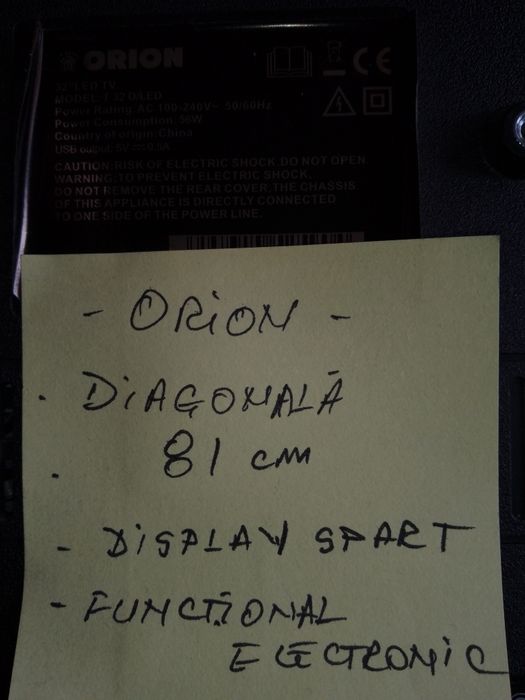 ORION
32" LED TV
MODEL: T 32 D/LED
Power Rating: AC 100-240V~ 50/60Hz
Power Consumption: 56W
Country of origin:China
USB output: 5V⎓0.5A
CAUTION:RISK OF ELECTRIC SHOCK.DO NOT OPEN.
WARNING:TO PREVENT ELECTRIC SHOCK,
DO NOT REMOVE THE REAR COVER,THE CHASSIS
OF THIS APPLIANCE IS DIRECTLY CONNECTED
TO ONE SIDE OF THE POWER LINE.
- ORiON -
. DiAGONALĂ
. 81 cm
- DiSPLAY SPART
- FUNCȚiONAL
ELECTRONiC